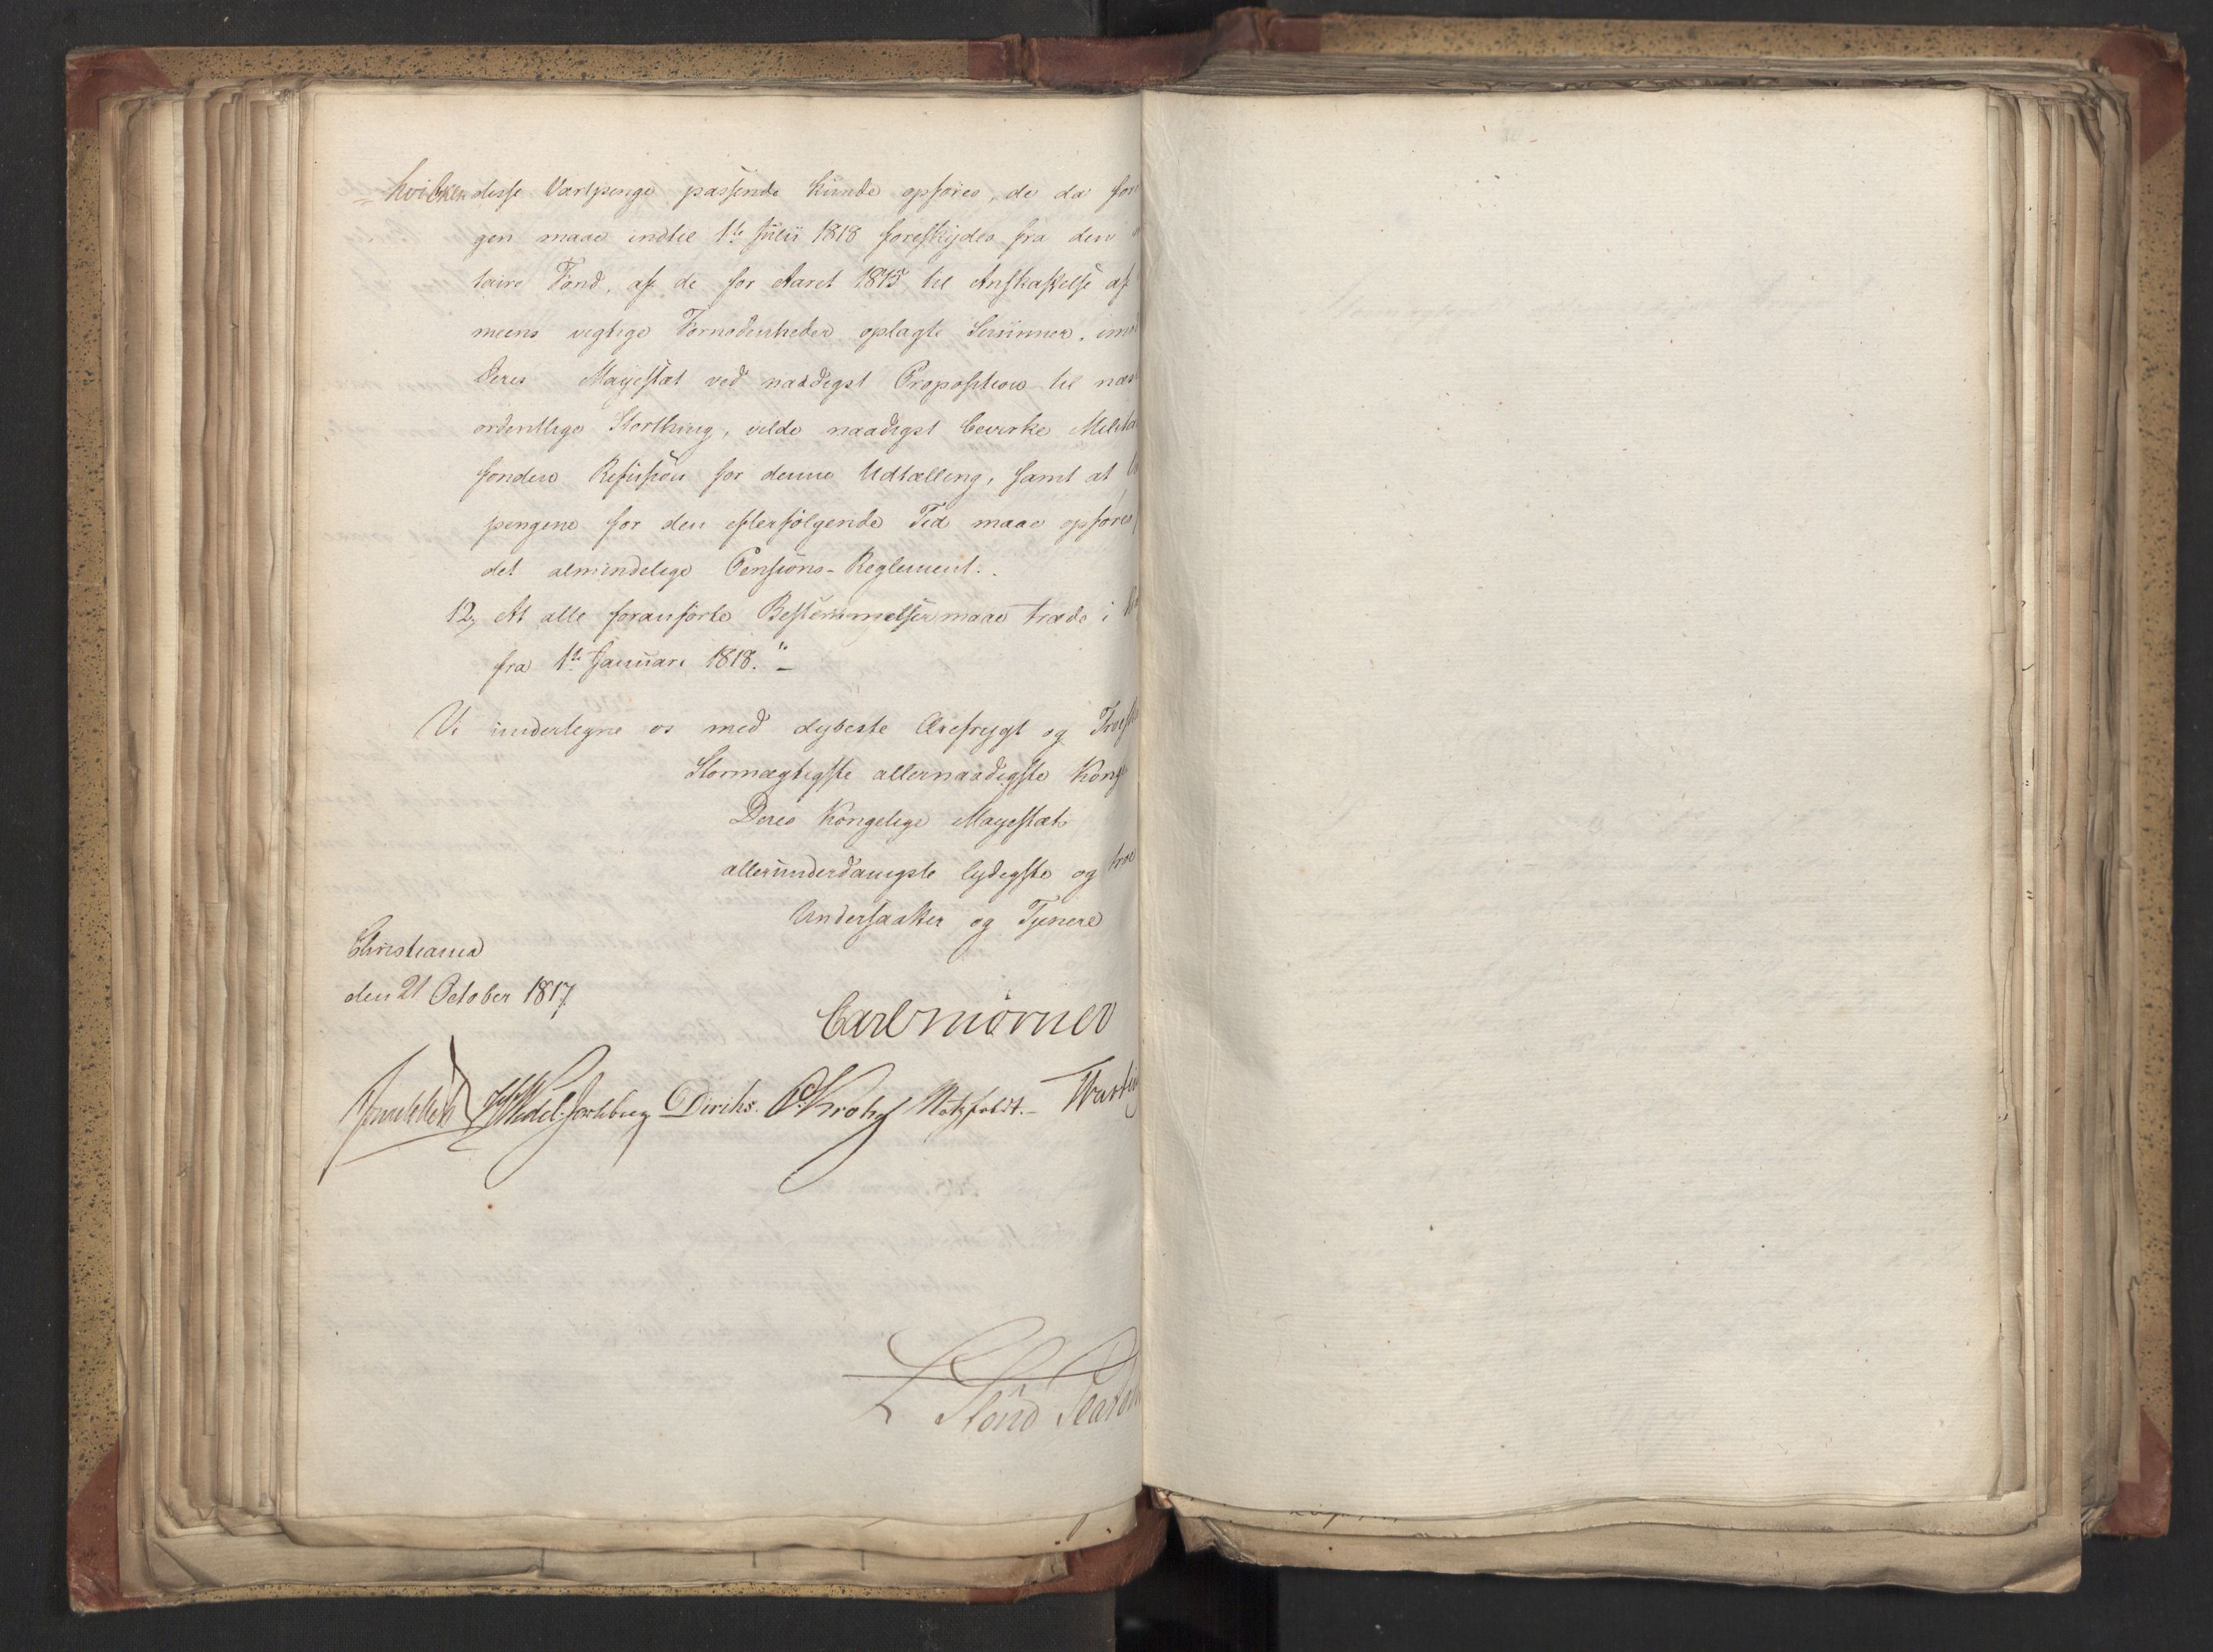 hvilken disse Vartpenge passende kunde opføres, de da for
gen maae indtil 1ste Julii 1818 foreskydes fra den
taire Fond, af de for Aaret 1815 til Anskaffelse af
meens vigtige Fornødenheder oplagte Summer, imod
Deres Mayestæt ved naadigst Proposition til næs
ordentlige Storthing, vilde naadigst bevirke Milita
fondens Refusion for denne Udtælling, samt at
pengene for den efterfølgende Tid maae opføres
det almindelige Pensions-Reglement.
12, At alle foranførte Bestemmelser maae træde i
fra 1ste Januari 1818."
Vi undertegne os med dybeste Ærefrygt og Troesk
Stormægtigste allernaadigste Konge
Deres Kongelige Mayestæts
allerunderdanigste lydigste og troe
Undersaatter og Tjenere
Christiania
den 21 October 1817
Carl Mörner
Sommelhielm Wedel-Jarlsberg Diriks. C Krohg Motzfeldt.